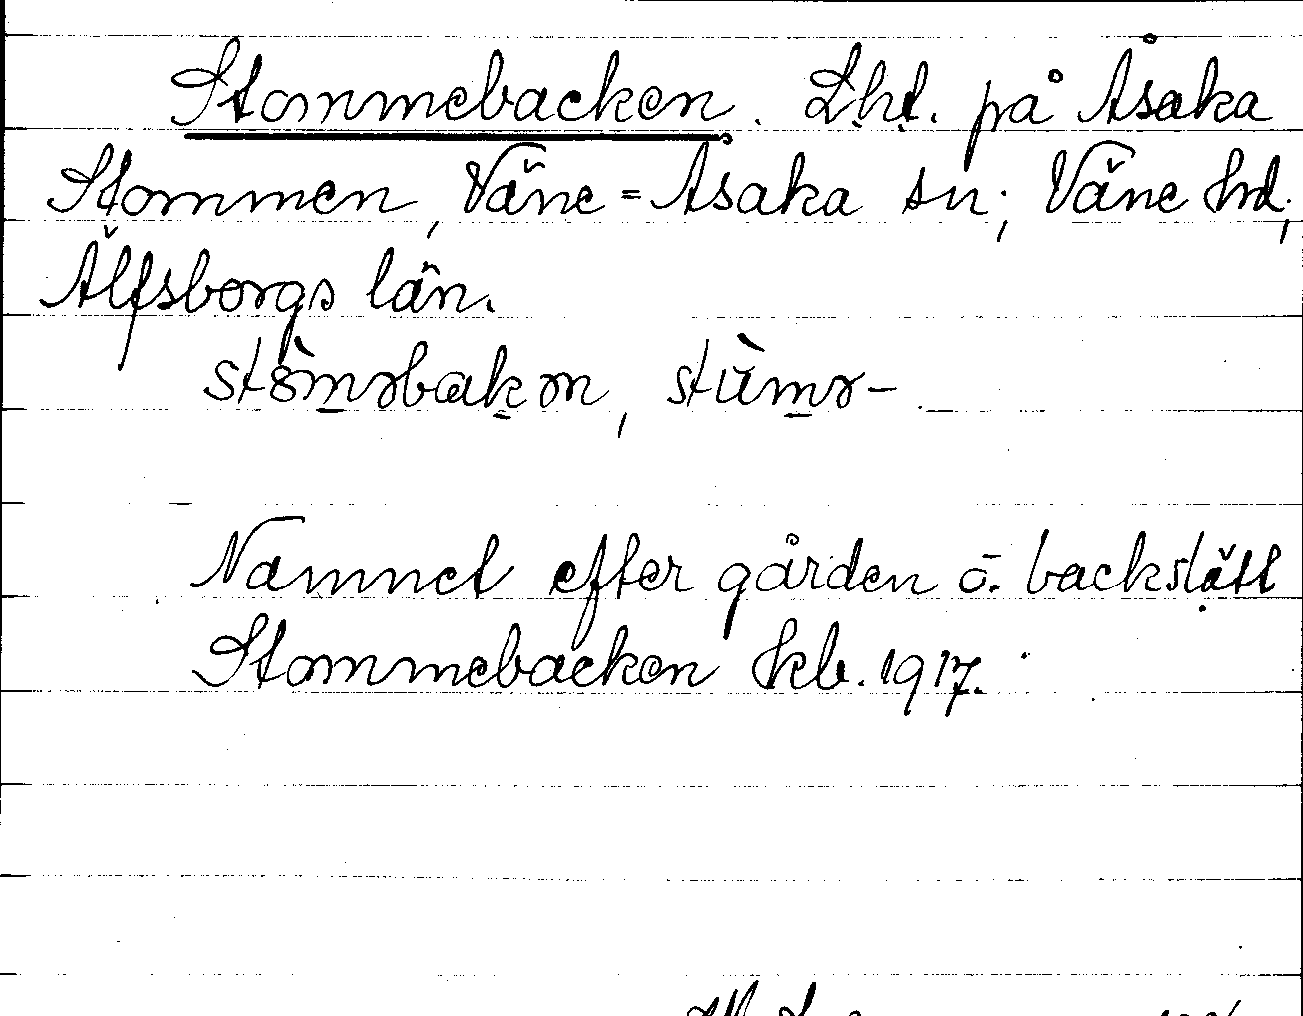 Stommebacken. Lht. på Åsaka
Stommen, Väne=Åsaka sn; Väne hd,
Älfsborgs län.
stòməbakən, stùmə-
Namnet efter gården o. backslätt
Stommebacken kb. 1917.